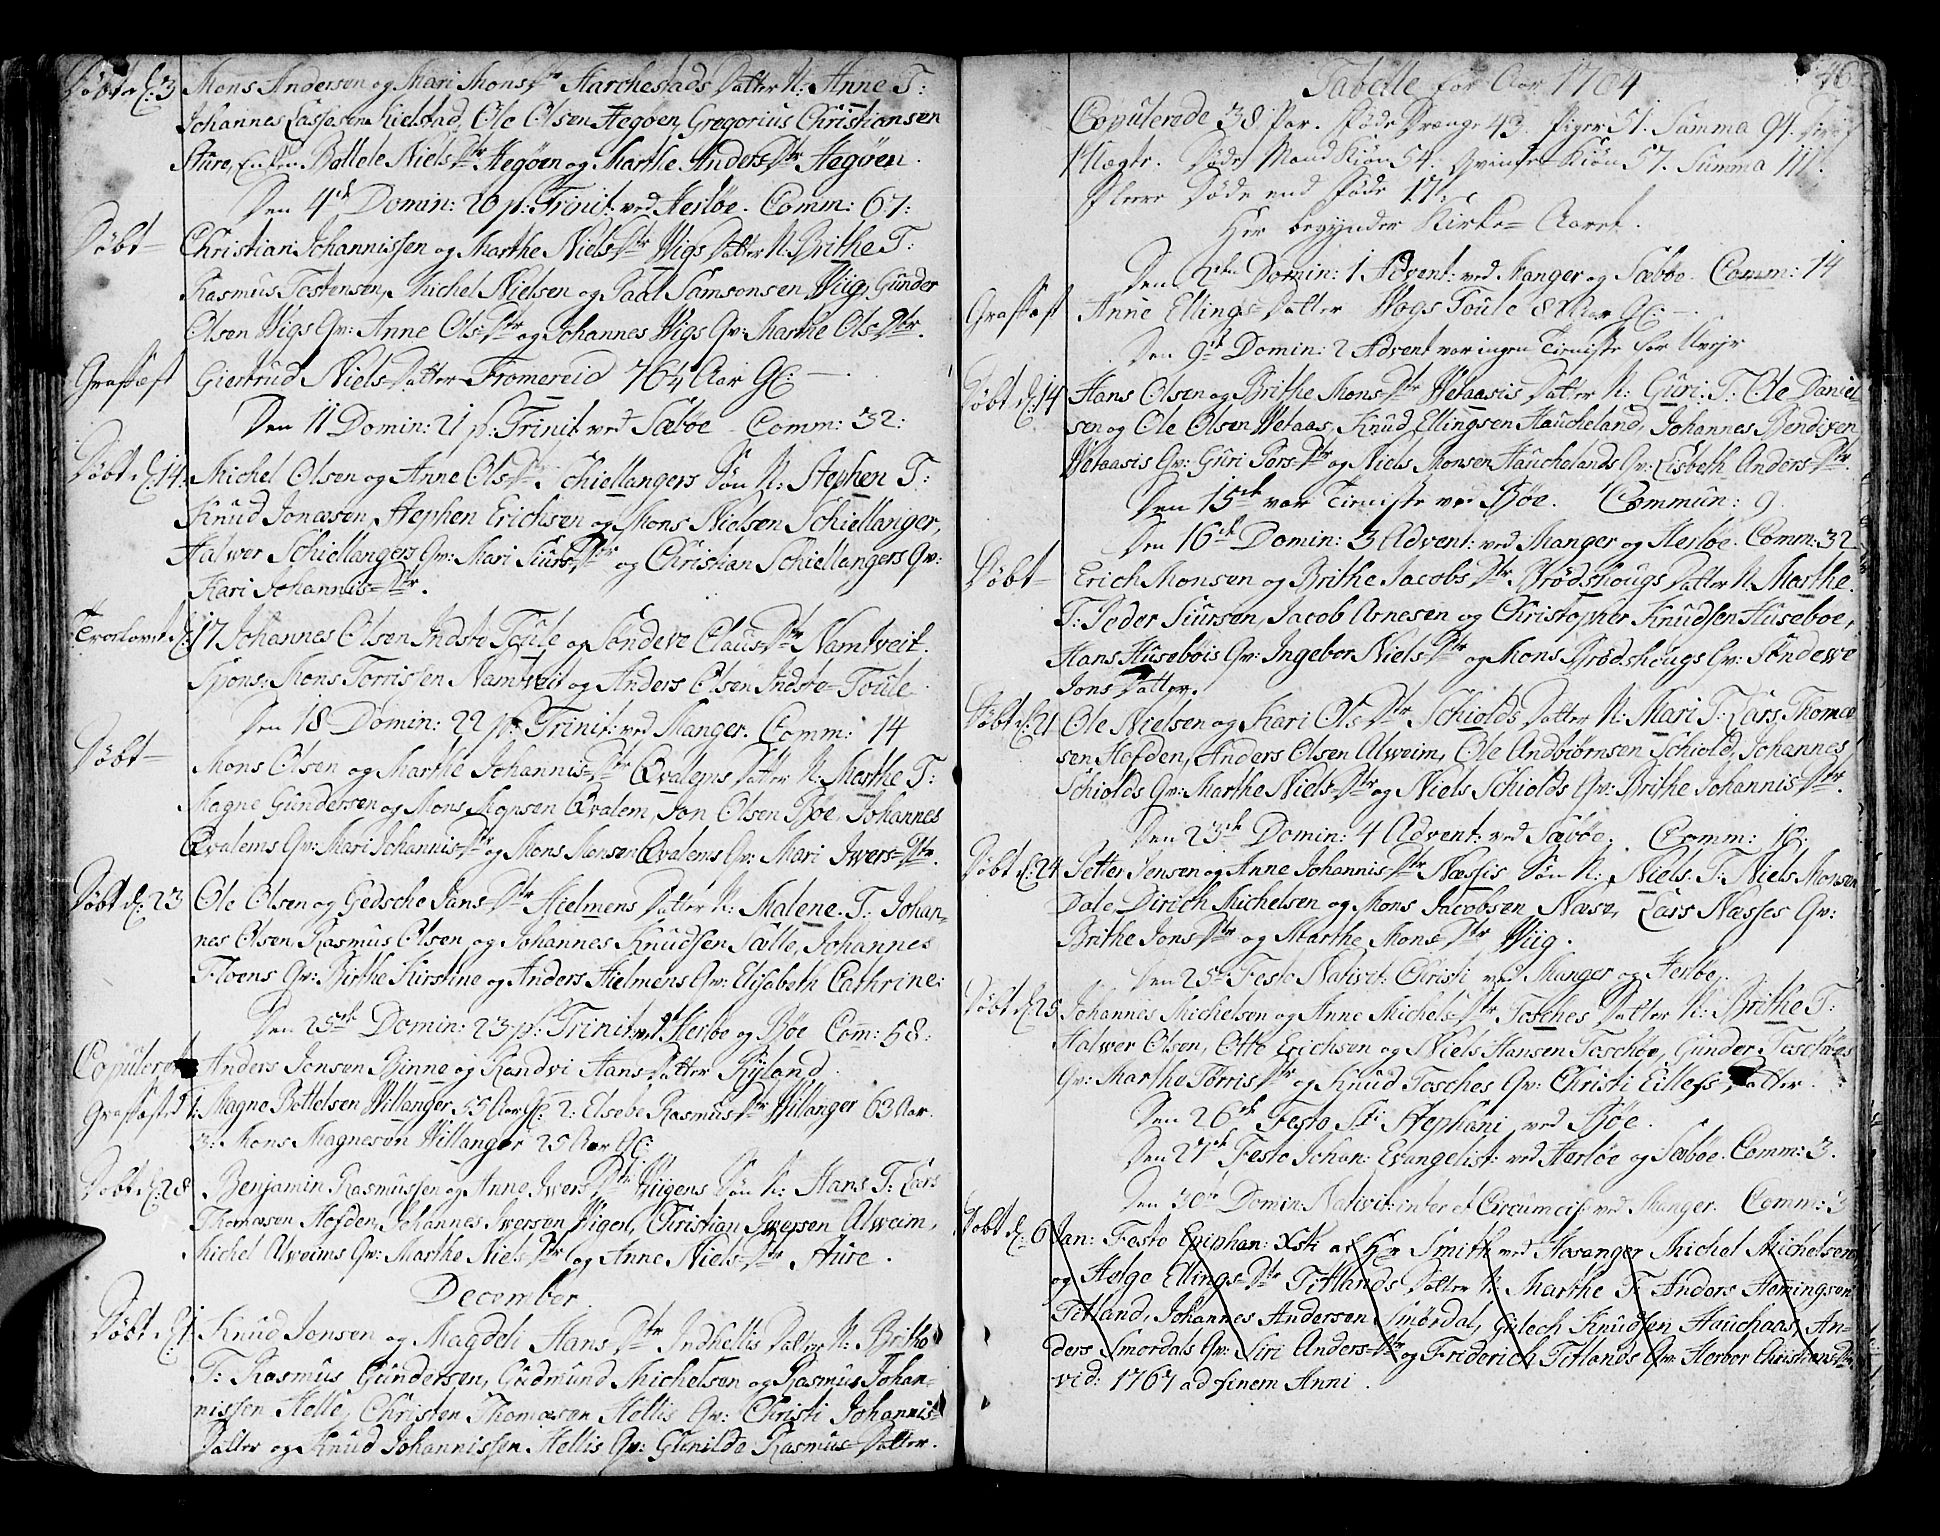 Döbt d: 3 Mons Andersen og Mari Mons Dtr Harchestads Datter N: Anne T:
Johannes Lassesen Kielstad, Ole Olsen Hegöen, Gregorius Christiansen
Aure, Enken Bottele Niels Dtr Hegöen og Marthe Anders Dtr Hegöen.
Den 4de Domin: 20 p: Trinit: ved Herlöe. Comm: 67:
Döbt Christian Johannissen og Marthe Niels Dtr Wigs Datter N: Brithe T:
Rasmus Tostensen, Michel Nielsen og Paal Samsonsen Wiig, Gunder
Olsen Wigs Qv: Anne Ols Dtr og Johannes Wigs Qv: Marthe Ols Dtr.
Graffæst Giertrud Niels Datter Fromereid 64 Aar Gl:
Den 11 Domin: 21 p: Trinit ved Sæböe Comm: 32:
Döbt d: 14 Michel Olsen og Anne Ols Dtr Schiellangers Sön N: Stephen T:
Knud Jonæsen, Stephen Erichsen og Mons Nielsen Schiellanger,
Halwer Schiellangers Qv: Mari Siurs Dtr og Christian Schiellangers Qv:
Kari Johannis Dtr.
Trolovet d: 17 Johannes Olsen Indste Toule og Söndeve Claus Dtr Namtveit.
Spons: Mons Torrissen Namtveit og Anders Olsen Indste Toule.
Den 18 Domin: 22 p: Trinit: ved Manger. Comm: 14
Döbt Mons Olsen og Marthe Johannis Dtr Qvalems Datter N: Merthe T:
Magne Gundersen og Mons Monsen Qvalem, Jon Olsen Böe, Johannes
Qvalems Qv: Mari Johannis Dtr og Mons Monsen Qvalems Qv: Mari Iwers Dtr.
Döbt d: 23 Ole Olsen og Gedsche Jans Dtr Hielmens Datter N: Malene. T: Johan-
nes Olsen, Rasmus Olsen og Johannes Knudsen Sælle, Johannes
Floens Qv: Birthe Kirstine og Anders Hielmens Qv: Elisabeth Cathrine:
Den 25de Domin: 23 p: Trinit ved Herlöe og Böe Com: 58:
Copuleret Anders Jonsen Binne og Randvi Hans Datter Ryland.
Graffæsted 1: Magne Bottelsen Willanger 55 Aar Gl: 2: Elsebe Rasmus Dtr Willanger 63 Aar.
3: Mons Magnesön Willanger 25 Aar Gl:
Döbt d: 28 Benjamin Rasmussen og Anne Iwers Dtr Wigens Sön N: Hans T: Lars
Thomæsen Hofden, Johannes Iwersen Wigen, Christian Iwersen Alweim,
Michel Alweims Qv: Marthe Niels Dtr og Anne Niels Dtr Aure.
December
Döbt d: 1 Knud Jonsen og Magdeli Hans Dtr Indhellis Datter N: Brithe
T: Rasmus Gundersen, Gudmund Michelsen og Rasmus Johan-
nissen Helle, Christen Thomæsen Hellis Qv: Christi Johannis
Datter og Knud Johannissen Hellis Qv: Gunilde Rasmus Datter.
46.
Tabelle for Aar 1764
Copulerede 38 Par. Föde Drenge 43. Piger 51. Summa 94.
1 Uægte. Döde Mand Kiön 54. Qvinde Kiön 57. Summa 111.
Flere Döde end Föde 17.
Her begynder Kirke Aaret.
Den 2den Domin: 1 Advent: ved Manger og Sæböe. Comm: 14
Graffæst Anne Ellings Datter Wogs Toule 8 Aar Gl:
Den 9de Domin: 2 Advent var ingen Tieniste for Uveyr
Döbt d: 14 Hans Olsen og Brithe Mons Dtr Wetaasis Datter N: Guri. T: Ole Daniel-
sen og Ole Olsen Wetaas, Knud Ellingsen Haucheland, Johannes Bendixen
Wetaasis Qv: Guri Pers Dtr og Niels Monsen Hauchelands Qv: Lisbeth Anders Dtr.
Den 15de var Tieniste ved Böe. Commun: 9.
Den 16de Domin: 3 Advent: ved Manger og Herlöe. Comm: 32
Döbt Erich Monsen og Brithe Jacobs Dtr Brödshougs Datter N: Merthe.
T: Peder Siursen, Jacob Arnesen og Christopher Knudsen Huseboe,
Hans Huseböis Qv: Ingebor Niels Dtr og Mons Brödshougs Qv: Söndewe
Jons Datter.
Döbt d: 21 Ole Nielsen og Kari Ols Dtr Schiolds Datter N: Mari T: Lars Thomæ
sen Hofden, Anders Olsen Alweim, Ole Andbiörnsen Schiold, Johannes
Schiolds Qv: Marthe Niels Dtr og Niels Schiolds Qv: Brithe Johannis Dtr.
Den 23de Domin: 4 Advent: ved Sæböe. Comm: 16:
Döbt d: 24 Petter Jensen og Anne Johannis Dtr Næssis Sön N: Niels. T: Niels Monsen
Dale, Dirich Michelsen og Mons Jacobsen Næse, Lars Næsses Qv:
Brithe Jons Dtr og Marthe Mons Dtr Wiig.
Den 25de Festo Nativit: Christi ved Manger og Herlöe,
Döbt d: 25 Johannes Michelsen og Anne Michels Dtr Tosches Datter N: Brithe T:
Halwer Olsen, Otte Erichsen og Niels Hansen Toschöe, Gunder Toschöes
Qv: Marthe Torris Dtr og Knud Tosches Qv: Christi Eillefs Datter.
Den 26de Festo Sti Stephani ved Böe.
Den 27de Festo Johan: Evangelist: ved Herlöe og Sæböe. Comm: 3.
Den 30te Domin: Nativit: inter et Circumcis: ved Manger. Comm: 3
Döbt d: 6 Jan: Festo Epiphan: Xsti af Hr Smith ved Hosanger Michel Michelsen
og Helge Ellings Dtr Titlands Datter N: Marthe T: Anders Hemingsen
Titland, Johannes Andersen Smördal, Gulech Knudsen Hauchaas, An-
ders Smordals Qv: Siri Anders Dtr og Friderich Titlands Qv: Herbor Christians Dtr
vid: 1767 ad finem Anni.